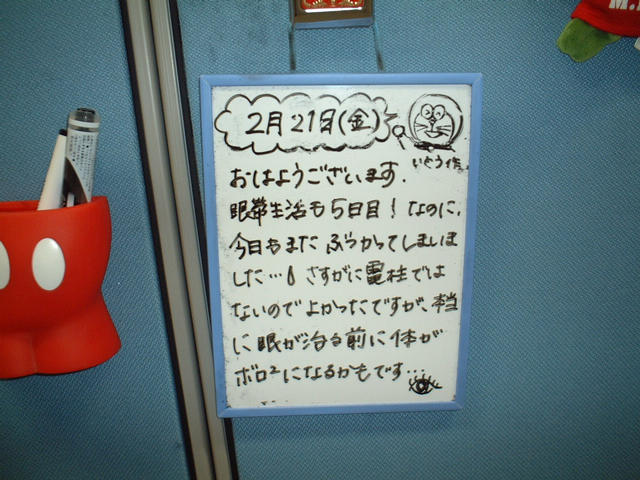 2月21日(金)
いとう作
おはようございます.
眼帯生活も5日目!なのに,
今日もまた ぶつかってしまいま
した…💧さすがに電柱では
ないのでよかったですが、本当
に眼が治る前に体が
ボロ²になるかもです…